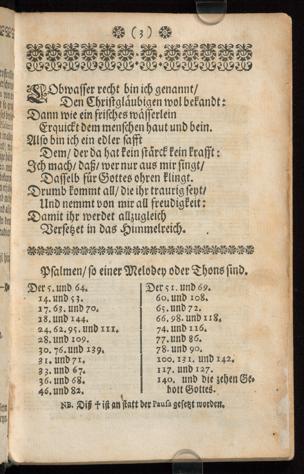 (3)
LObwasser recht bin ich genannt/
Den Christgläubigen wol bekandt:
Dann wie ein frisches wässerlein
Erquickt dem menschen haut und bein.
Also bin ich ein edler safft
Dem/ der da hat kein stärck kein krafft:
Ich mach/ daß/ wer nur aus mir singt/
Dasselb für Gottes ohren klingt.
Drumb kommt all/ die ihr traurig seyt/
Und nemmt von mir all freudigkeit:
Damit ihr werdet allzugleich
Versetzet in das Himmelreich.
Psalmen/ so einer Melodey oder Thons sind.
Der 5. und 64.
14. und 53.
17. 63. und 70.
18. und 144.
24. 62. 95. und 111.
28. und 109.
30. 76. und 139.
31. und 71.
33. und 67.
36. und 68.
46. und 82.
Der 51. und 69.
60. und 108.
65. und 72.
66. 98. und 118.
74. und 116.
77. und 86.
78. und 90.
100. 131. und 142.
117. und 127.
140. und die zehen Ge-
bott Gottes.
NB. Diß † ist an statt der Pausa gesetzt worden.